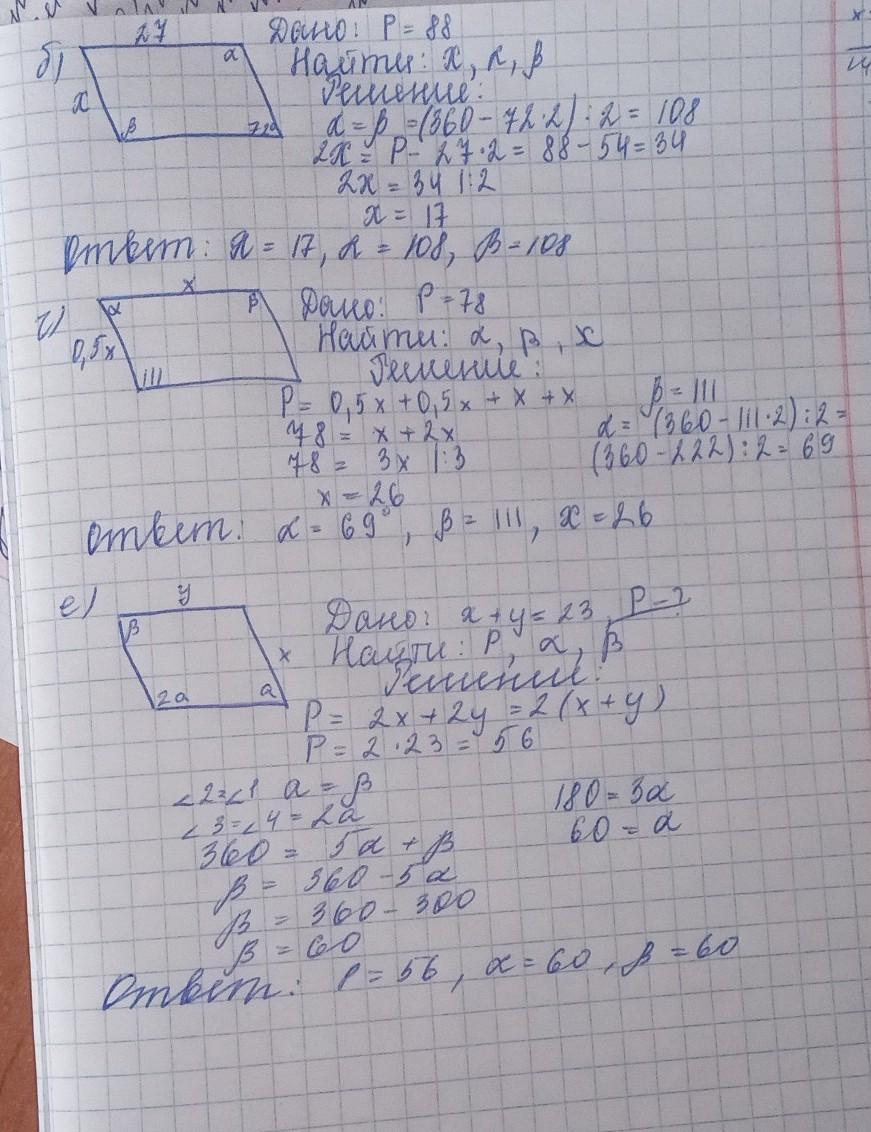 27
Дано: P = 88
б)
α
Найти: x, α, β
Решение:
x
β
72
α = β = (360 - 72·2) : 2 = 108
2x = P - 27·2 = 88 - 54 = 34
2x = 34 |:2
x = 17
Ответ: x = 17, α = 108, β = 108
x
г)
α
β
Дано: P = 78
Найти: α, β, x
0,5x
111
Решение:
P = 0,5x + 0,5x + x + x
β = 111
78 = x + 2x
α = (360 - 111·2) : 2 =
78 = 3x |:3
(360 - 222) : 2 = 69
x = 26
Ответ: α = 69°, β = 111, x = 26
е)
y
β
Дано: x + y = 23, P - ?
x
Найти: P, α, β
Решение:
2a
a
P = 2x + 2y = 2(x + y)
P = 2·23 = 56
∠2=∠1 a = β
180 = 3α
∠3=∠4 = 2a
60 = α
360 = 5α + β
β = 360 - 5α
β = 360 - 300
β = 60
Ответ: P = 56, α = 60, β = 60